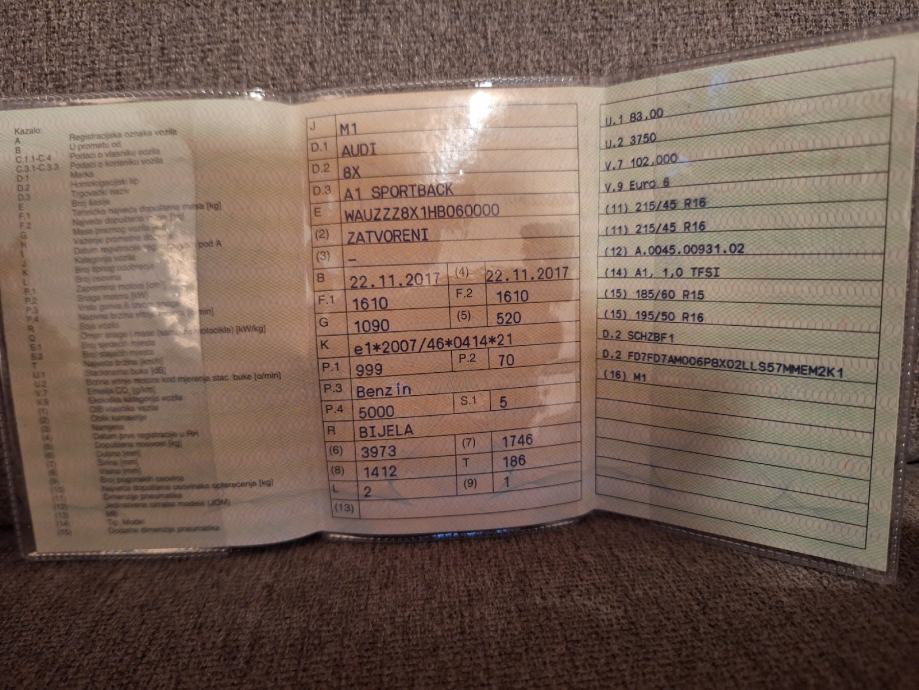 Kazalo:
A Registracijska oznaka vozila
B U prometu od
C.1.1-C.4 Podaci o vlasniku vozila
C.3.1-C.3.3 Podaci o korisniku vozila
D.1 Marka
D.2 Homologacijski tip
D.3 Trgovački naziv
E Broj šasije
F.1 Tehnička najveća dopuštena masa [kg]
F.2 Najveća dopuštena
G Masa praznog vozila
H Važenje prometne
I Datum registracije pod A
J Kategorija vozila
K Broj tipnog odobrenja
L Broj osovina
P.1
P.2 Snaga motora [kW]
P.3
P.4
R Boja vozila
Q [kW/kg]
S.1
S.2
T Najveća brzina [km/h]
U.1 Stacionarna buka [dB]
U.2 kod mjerenja stac. buke [o/min]
V.7
V.9 Ekološka kategorija vozila
(1)
(2)
(3) Namjena
(4) Datum prve registracije u RH
(5) Dopuštena nosivost [kg]
(6) Dužina [mm]
(7) Širina [mm]
(8) Visina [mm]
(9) Broj pogonskih osovina
(10) Najveće dopušteno osovinsko opterećenje [kg]
(11) Dimenzije pneumatika
(12) Jedinstvena oznaka modela (JOM)
(13) MB
(14) Tip, Model
(15) Dodatne dimenzije pneumatika
J M1
D.1 AUDI
D.2 8X
D.3 A1 SPORTBACK
E WAUZZZ8X1HB060000
(2) ZATVORENI
(3) –
B 22.11.2017 (4) 22.11.2017
F.1 1610 F.2 1610
G 1090 (5) 520
K e1*2007/46*0414*21
P.1 999 P.2 70
P.3 Benzin
P.4 5000 S.1 5
R BIJELA
(6) 3973 (7) 1746
(8) 1412 T 186
L 2 (9) 1
(13)
U.1 83,00
U.2 3750
V.7 102,000
V.9 Euro 6
(11) 215/45 R16
(11) 215/45 R16
(12) A.0045.00931.02
(14) A1, 1,0 TFSI
(15) 185/60 R15
(15) 195/50 R16
D.2 SCHZBF1
D.2 FD7FD7AM006P8X02LLS57MMEM2K1
(16) M1